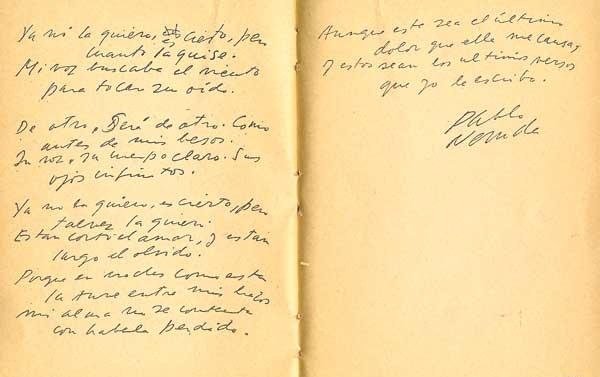 Ya no la quiero, es cierto, pero
cuanto la quise.
Mi voz buscaba el viento
para tocar su oído.
De otro, Será de otro. Como
antes de mis besos.
Su voz, su cuerpo claro. Sus
ojos infinitos.
Ya no la quiero, es cierto, pero
talvez la quiero.
Es tan corto el amor, y es tan
largo el olvido.
Porque en noches como esta
la tuve entre mis brazos
mi alma no se contenta
con haberla perdido.
Aunque este sea el último
dolor que ella me causa,
y estos sean los ultimos versos
que yo le escribo.
Pablo
Neruda